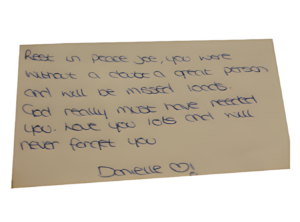 Rest in peace Joe, you were
without a doubt a great person
and will be missed loads.
God really must have needed
you. Love you lots and will
never forget you
Danielle ♡!